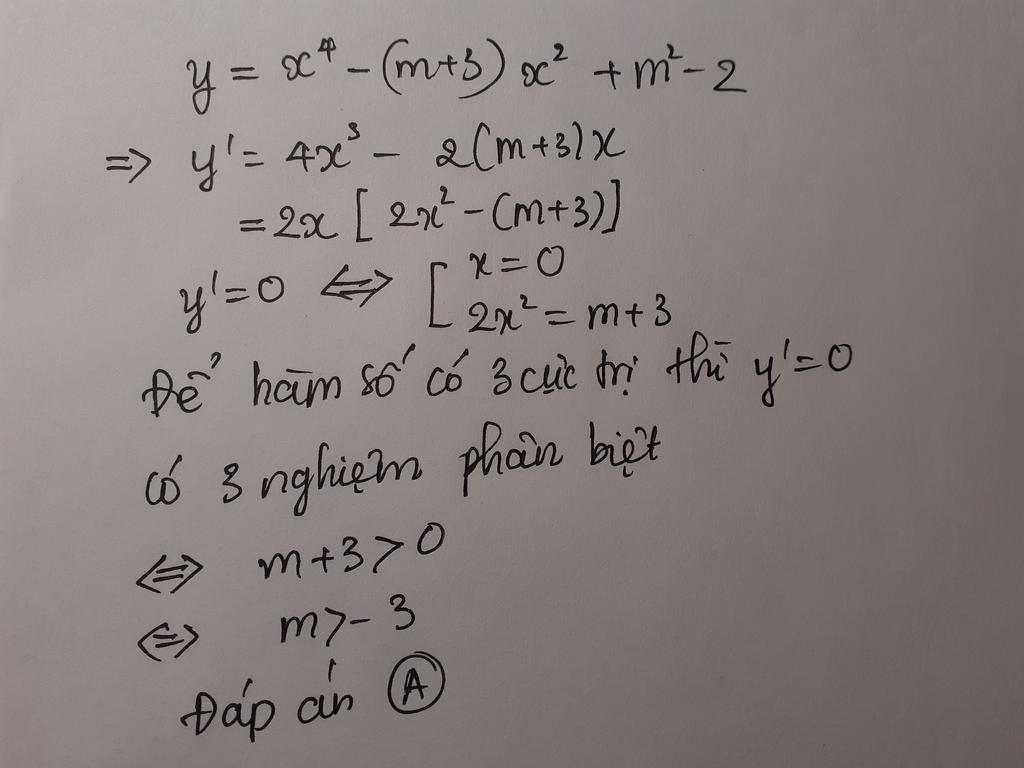 y = x⁴ - (m+3) x² + m² - 2
=> y' = 4x³ - 2(m+3)x
= 2x [ 2x² - (m+3)]
y' = 0 <=> [ x = 0
2x² = m+3
Để hàm số có 3 cực trị thì y' = 0
có 3 nghiệm phân biệt
<=> m+3 > 0
<=> m > -3
Đáp án A